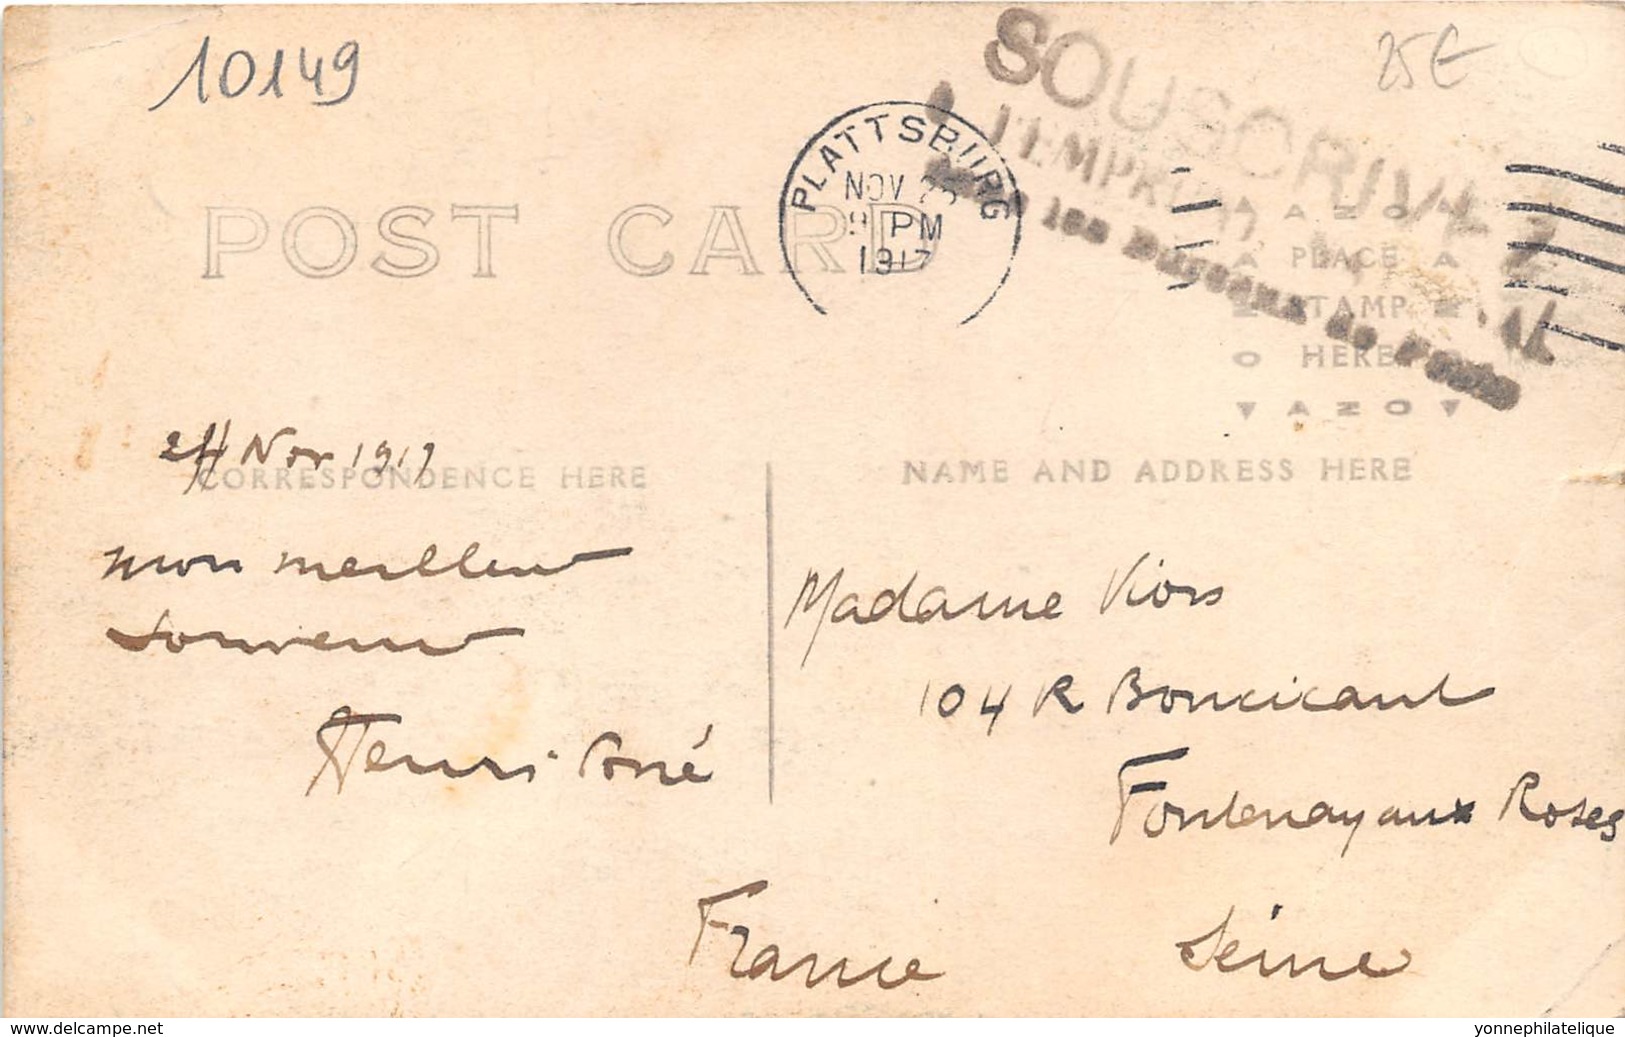 10149
25€
SOUSCRIVEZ
à l'EMPRUNT
dans les Bureaux de Poste
PLATTSBURG
NOV 25
9 PM
1917
POST CARD
AZO
PLACE
STAMP
HERE
AZO
24 Nov 1917
CORRESPONDENCE HERE
NAME AND ADDRESS HERE
mon meilleur
souvenir
Henri
Madame
104 R Boucicaut
Fontenay aux Roses
Seine
France
www.delcampe.net
yonnephilatelique